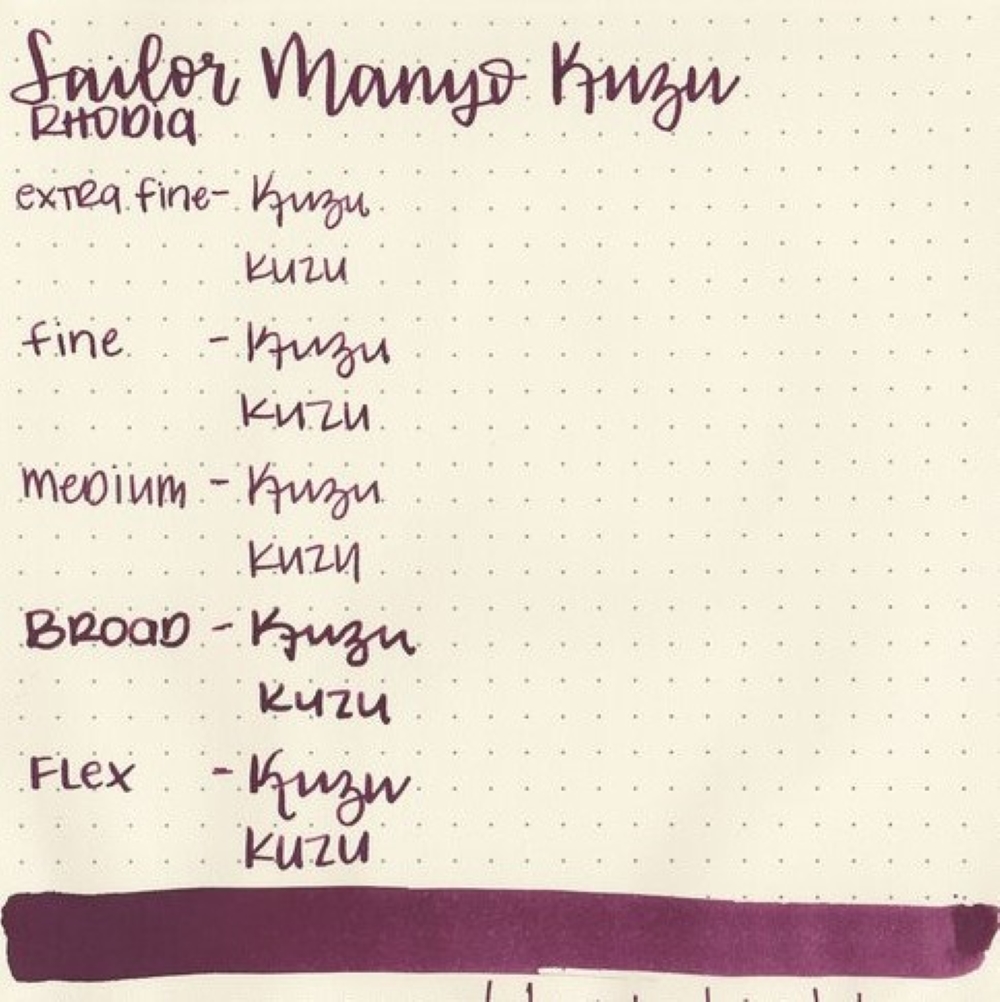 Sailor Manyo Kuzu
RHODIA
extra fine- Kuzu
kuzu
fine - Kuzu
kuzu
medium - Kuzu
kuzu
BROAD - Kuzu
kuzu
Flex - Kuzu
kuzu